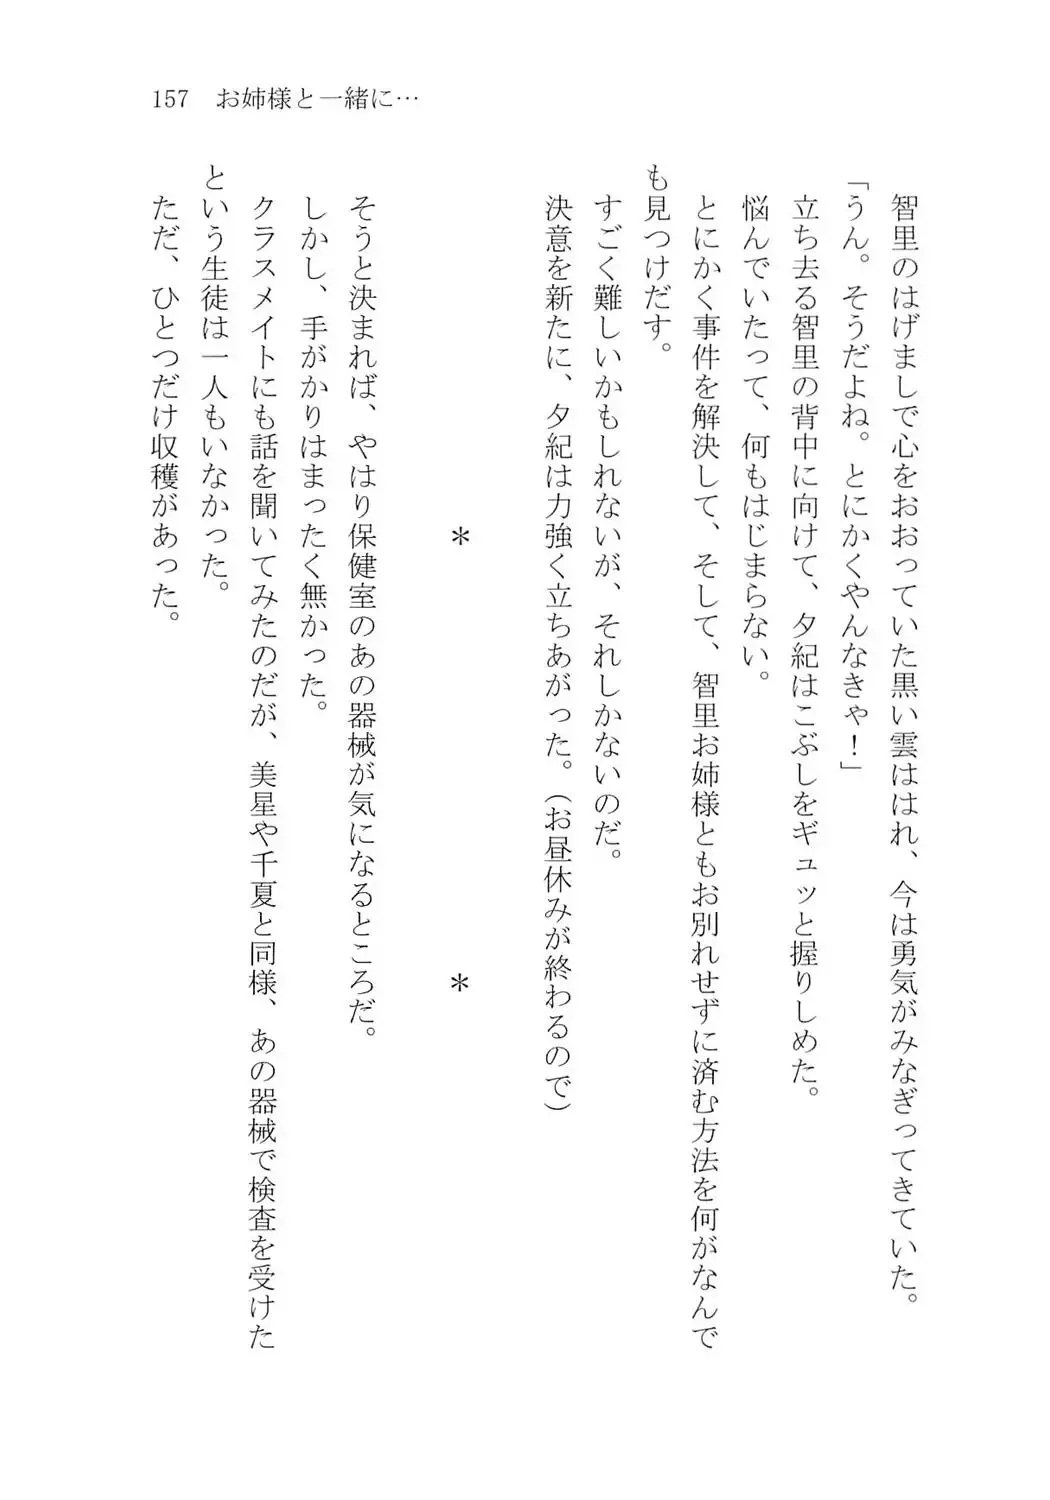 157　お姉様と一緒に…
智里のはげましで心をおおっていた黒い雲ははれ、今は勇気がみなぎってきていた。
「うん。そうだよね。とにかくやんなきゃ！」
立ち去る智里の背中に向けて、夕紀はこぶしをギュッと握りしめた。
悩んでいたって、何もはじまらない。
とにかく事件を解決して、そして、智里お姉様ともお別れせずに済む方法を何がなんで
も見つけだす。
すごく難しいかもしれないが、それしかないのだ。
決意を新たに、夕紀は力強く立ちあがった。（お昼休みが終わるので）
＊　　　　　＊
そうと決まれば、やはり保健室のあの器械が気になるところだ。
しかし、手がかりはまったく無かった。
クラスメイトにも話を聞いてみたのだが、美星や千夏と同様、あの器械で検査を受けた
という生徒は一人もいなかった。
ただ、ひとつだけ収穫があった。